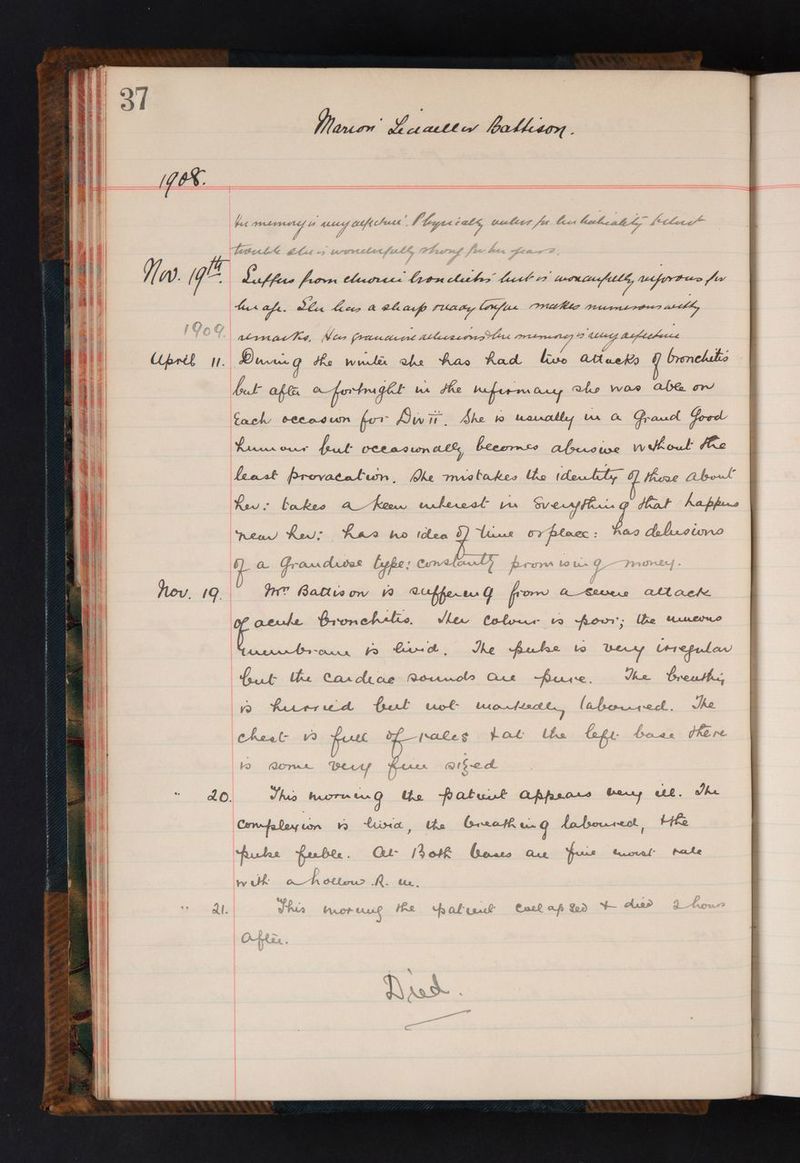 37
Marion Battison.
1908.
her memory is very defective. Physically unless for her liability to chest
trouble she is wonderfully strong for her years.
Nov. 19th. Suffers from chronic bronchitis but is wonderfully vigorous for
her age. She has a sharp ready tongue makes numerous witty
1909. remarks. Has grandiose delusions & her memory is very defective
April 11. During the winter she has had two attacks of bronchitis
but after a fortnight in the infirmary she was able on
Each occasion for Div II. She is usually in a Grand Good
humour but occasionally becomes abusive without the
least provocation. She mistakes the identity of those about
her: takes a keen interest in Everything that happens
near her: has no idea of time or place: has delusions
of a Grandiose type: constantly promising money.
Nov. 19. Mrs Battison is suffering from a severe attack
of acute bronchitis. Her colour is poor; the mucous
membrane is livid. The pulse is very irregular
but the Cardiac sounds are pure. The breathing
is hurried but not markedly laboured. The
chest is full of rales & at the left base there
is some very fine sized
" 20. This morning the patient appears very ill. The
complexion is livid, the breathing laboured, & the
pulse feeble. At Both bases are fine moist rale
with a hollow R. m.
" 21. This morning the patient collapsed & died 2 hours
After.
Died.